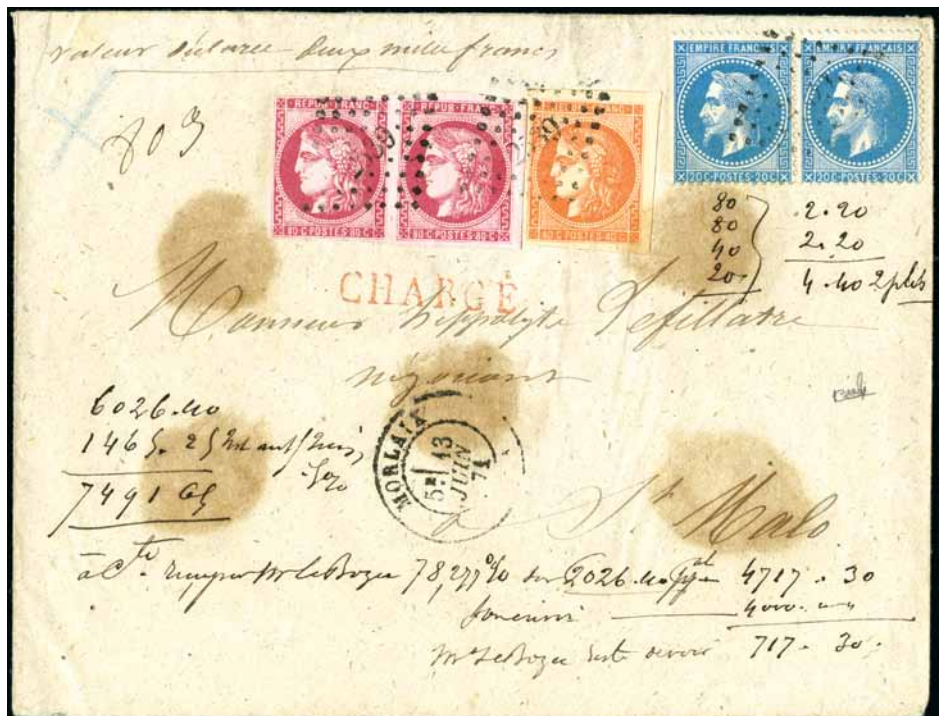 Valeur déclarée deux mille francs
803
REPUB·FRANC·
80 C·POSTES·80 C·
REPUB·FRANC·
80 C·POSTES·80 C·
40 C·POSTES·40 C·
EMPIRE FRANÇAIS
20C·POSTES·20C
EMPIRE FRANÇAIS
20C·POSTES·20C
80 2.20
80 2.20
40 4.40 2 plis
20
CHARGÉ
Monsieur Hippolyte Lefillatre
négociant
6026.40
1465.25
7491 65
MORLAIX
5E 13
JUIN
71
à St Malo
à Cte Le Bozec 78,277 % sur 6026.40 4717.30
4000.
Mr Le Bozec reste devoir 717.30